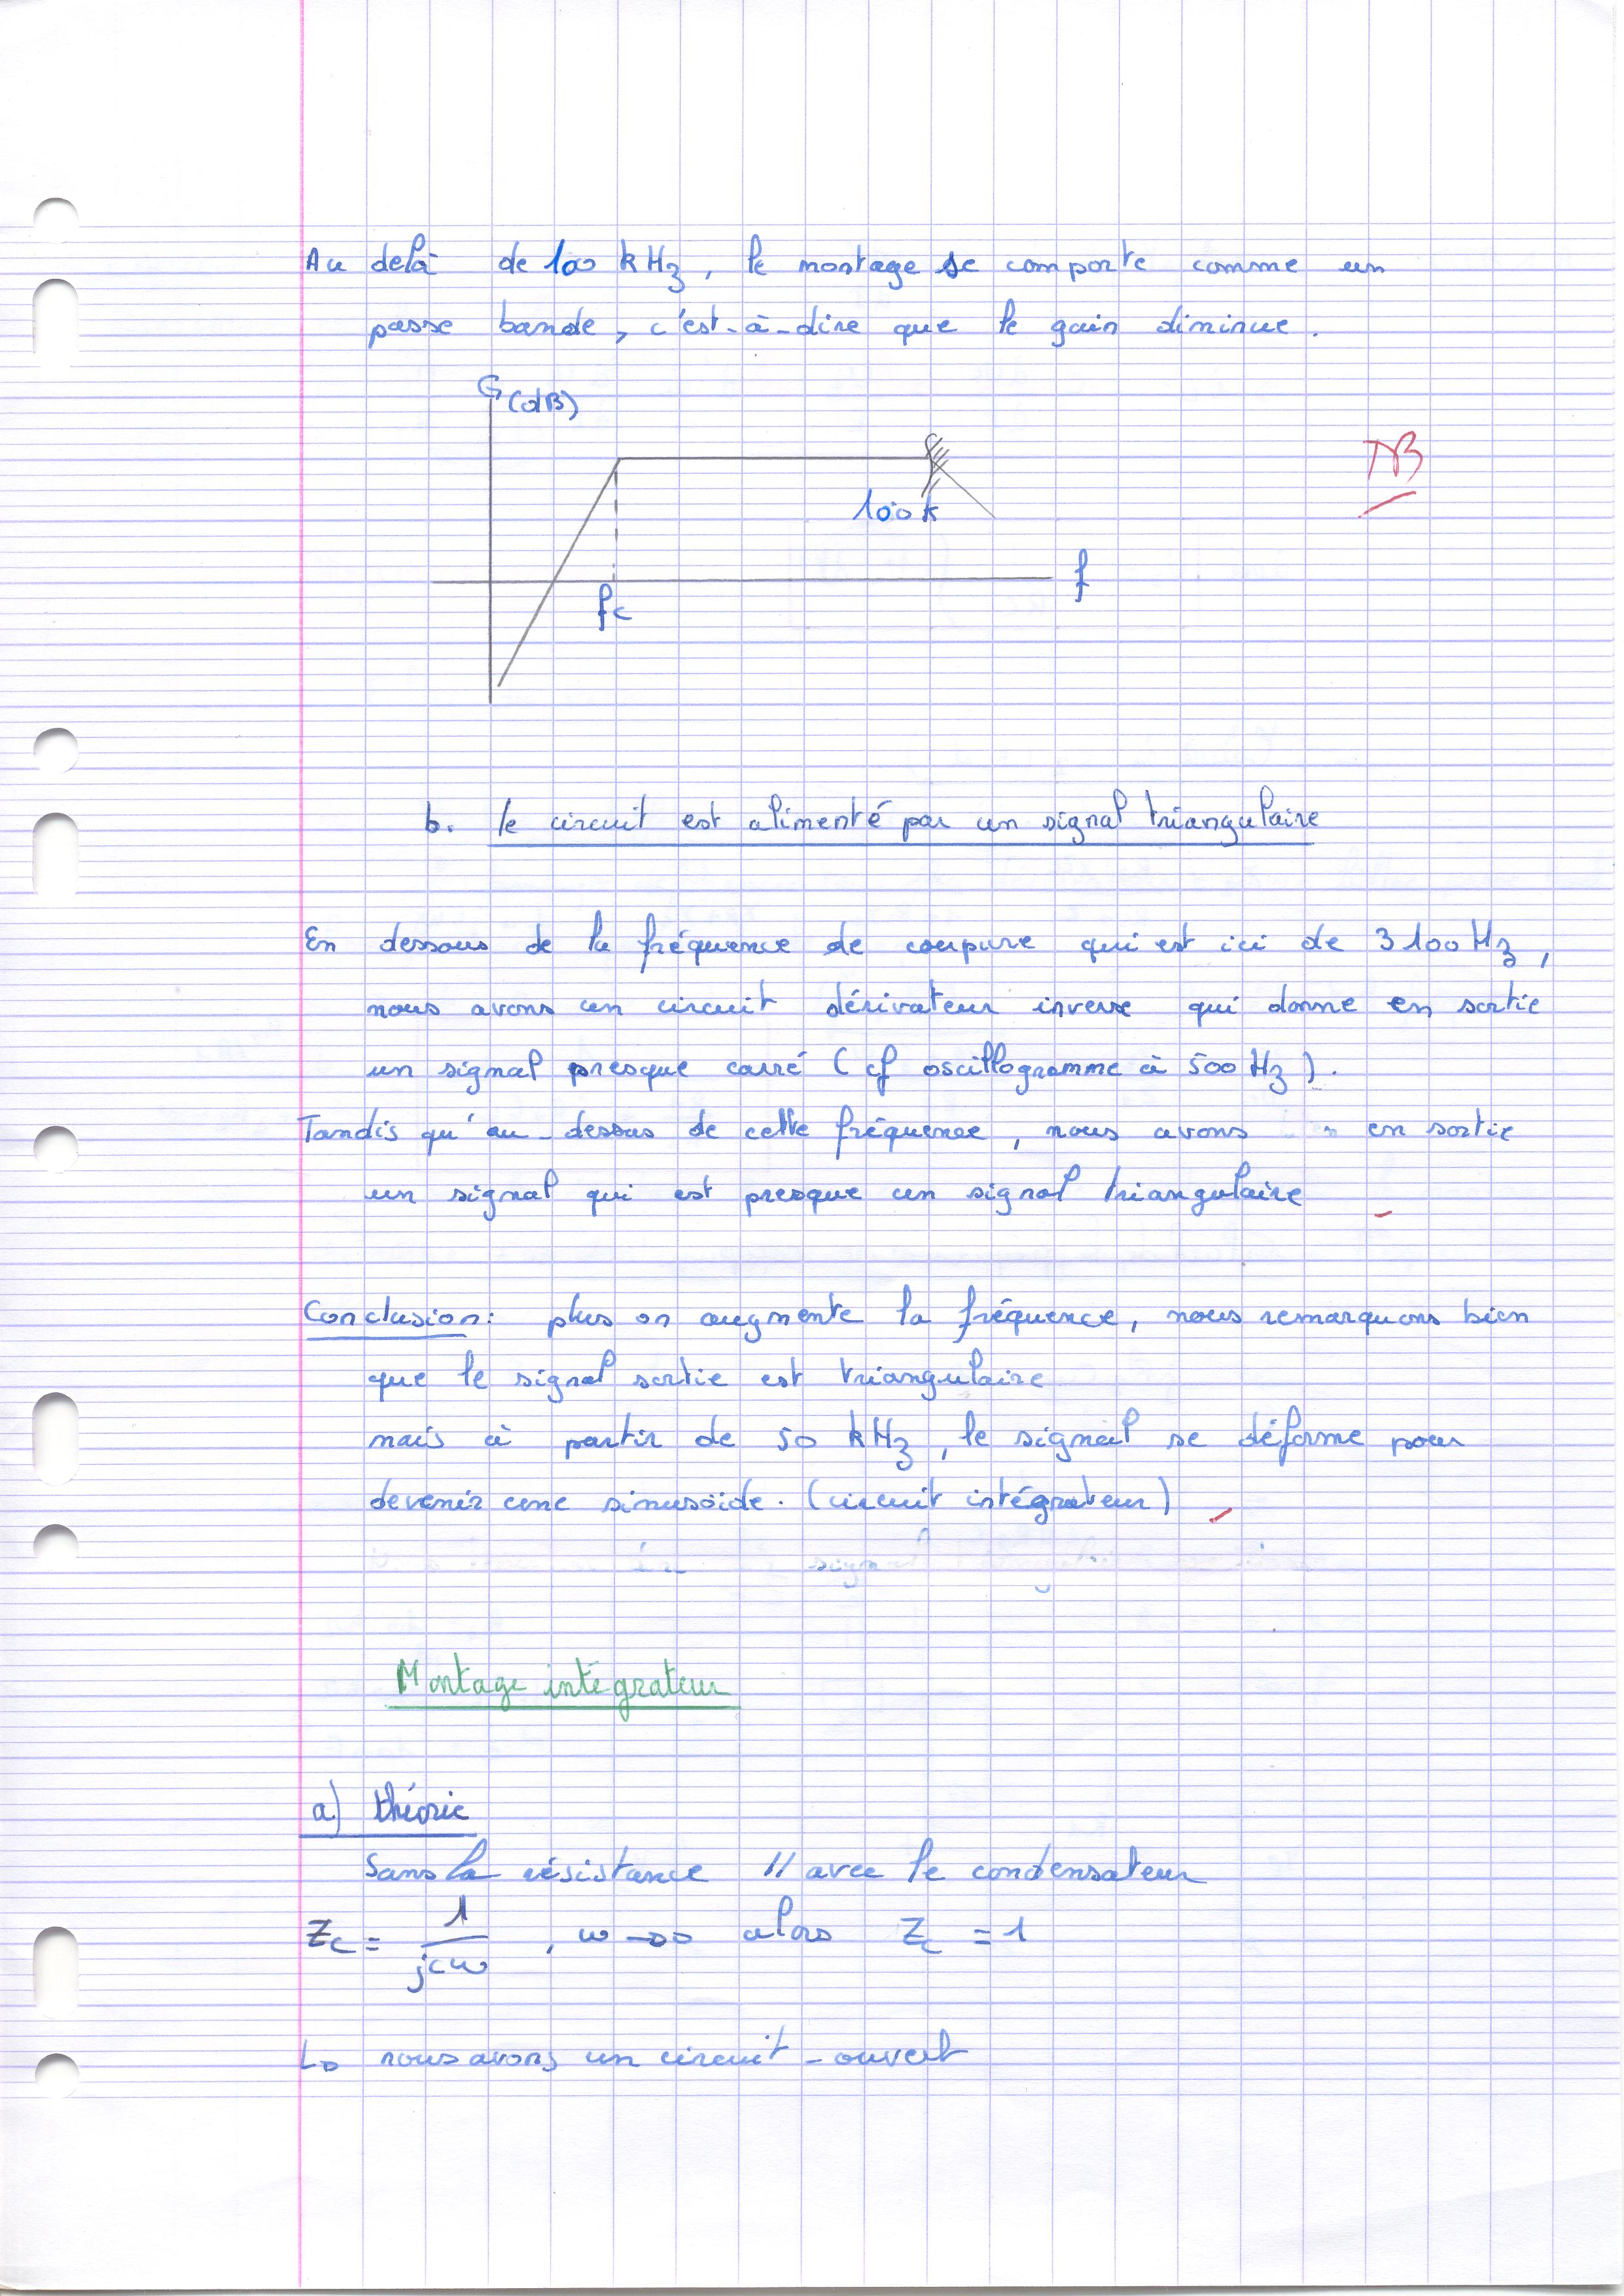 Au delà de 100 kHz, le montage se comporte comme un
passe bande, c'est-à-dire que le gain diminue.
G(dB)
TB
100k
f
fc
b. le circuit est alimenté par un signal triangulaire
En dessous de la fréquence de coupure qui est ici de 3100 Hz,
nous avons un circuit dérivateur inverse qui donne en sortie
un signal presque carré (cf oscillogramme à 500 Hz).
Tandis qu'au-dessus de cette fréquence, nous avons en sortie
un signal qui est presque un signal triangulaire
Conclusion: plus on augmente la fréquence, nous remarquons bien
que le signal sortie est triangulaire
mais à partir de 50 kHz, le signal se déforme pour
devenir une sinusoïde. (circuit intégrateur)
Montage intégrateur
a) théorie
Sans la résistance // avec le condensateur
Zc = 1/jcω, ω → 0 alors Zc = 1
↳ nous avons un circuit-ouvert